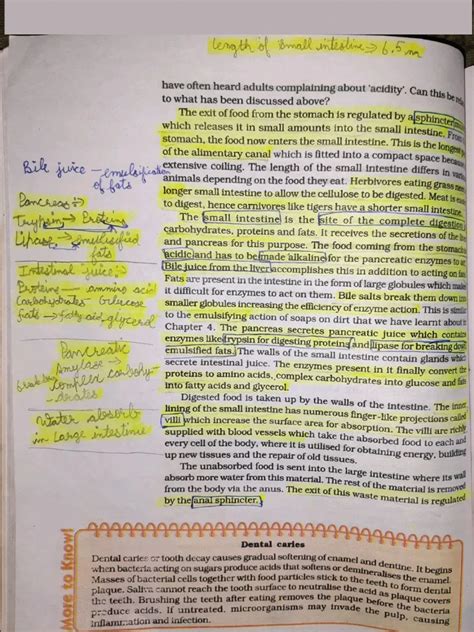 length of small intestine → 6.5 m
have often heard adults complaining about 'acidity'. Can this be
to what has been discussed above?
The exit of food from the stomach is regulated by a sphincter
which releases it in small amounts into the small intestine. From
stomach, the food now enters the small intestine. This is the longest
of the alimentary canal which is fitted into a compact space because
extensive coiling. The length of the small intestine differs in
animals depending on the food they eat. Herbivores eating grass
longer small intestine to allow the cellulose to be digested. Meat is
to digest, hence carnivores like tigers have a shorter small intestine.
The small intestine is the site of the complete digestion
carbohydrates, proteins and fats. It receives the secretions of the
and pancreas for this purpose. The food coming from the stomach
acidic and has to be made alkaline for the pancreatic enzymes to
Bile juice from the liver accomplishes this in addition to acting on
Fats are present in the intestine in the form of large globules which
it difficult for enzymes to act on them. Bile salts break them down
smaller globules increasing the efficiency of enzyme action. This is
to the emulsifying action of soaps on dirt that we have learnt about
Chapter 4. The pancreas secretes pancreatic juice which contains
enzymes like trypsin for digesting proteins and lipase for breaking down
emulsified fats. The walls of the small intestine contain glands which
secrete intestinal juice. The enzymes present in it finally convert the
proteins to amino acids, complex carbohydrates into glucose and
into fatty acids and glycerol.
Digested food is taken up by the walls of the intestine. The inner
lining of the small intestine has numerous finger-like projections called
villi which increase the surface area for absorption. The villi are richly
supplied with blood vessels which take the absorbed food to each and
every cell of the body, where it is utilised for obtaining energy, building
up new tissues and the repair of old tissues.
The unabsorbed food is sent into the large intestine where its wall
absorb more water from this material. The rest of the material is removed
from the body via the anus. The exit of this waste material is regulated
by the anal sphincter.
Bile juice → emulsification
of fats
Pancreas :→
Trypsin → Proteins
Lipase → emulsified
fats
Intestinal juice :→
Proteins → ammino acid
Carbohydrates Glucose
fats → fatty acid, glycerol
Pancreatic
Amylase →
complex carbohy-
drates
Water absorb
in large intestine
More to Know!
Dental caries
Dental caries or tooth decay causes gradual softening of enamel and dentine. It begins
when bacteria acting on sugars produce acids that softens or demineralises the enamel.
Masses of bacterial cells together with food particles stick to the teeth to form dental
plaque. Saliva cannot reach the tooth surface to neutralise the acid as plaque covers
the teeth. Brushing the teeth after eating removes the plaque before the bacteria
produce acids. If untreated, microorganisms may invade the pulp, causing
inflammation and infection.